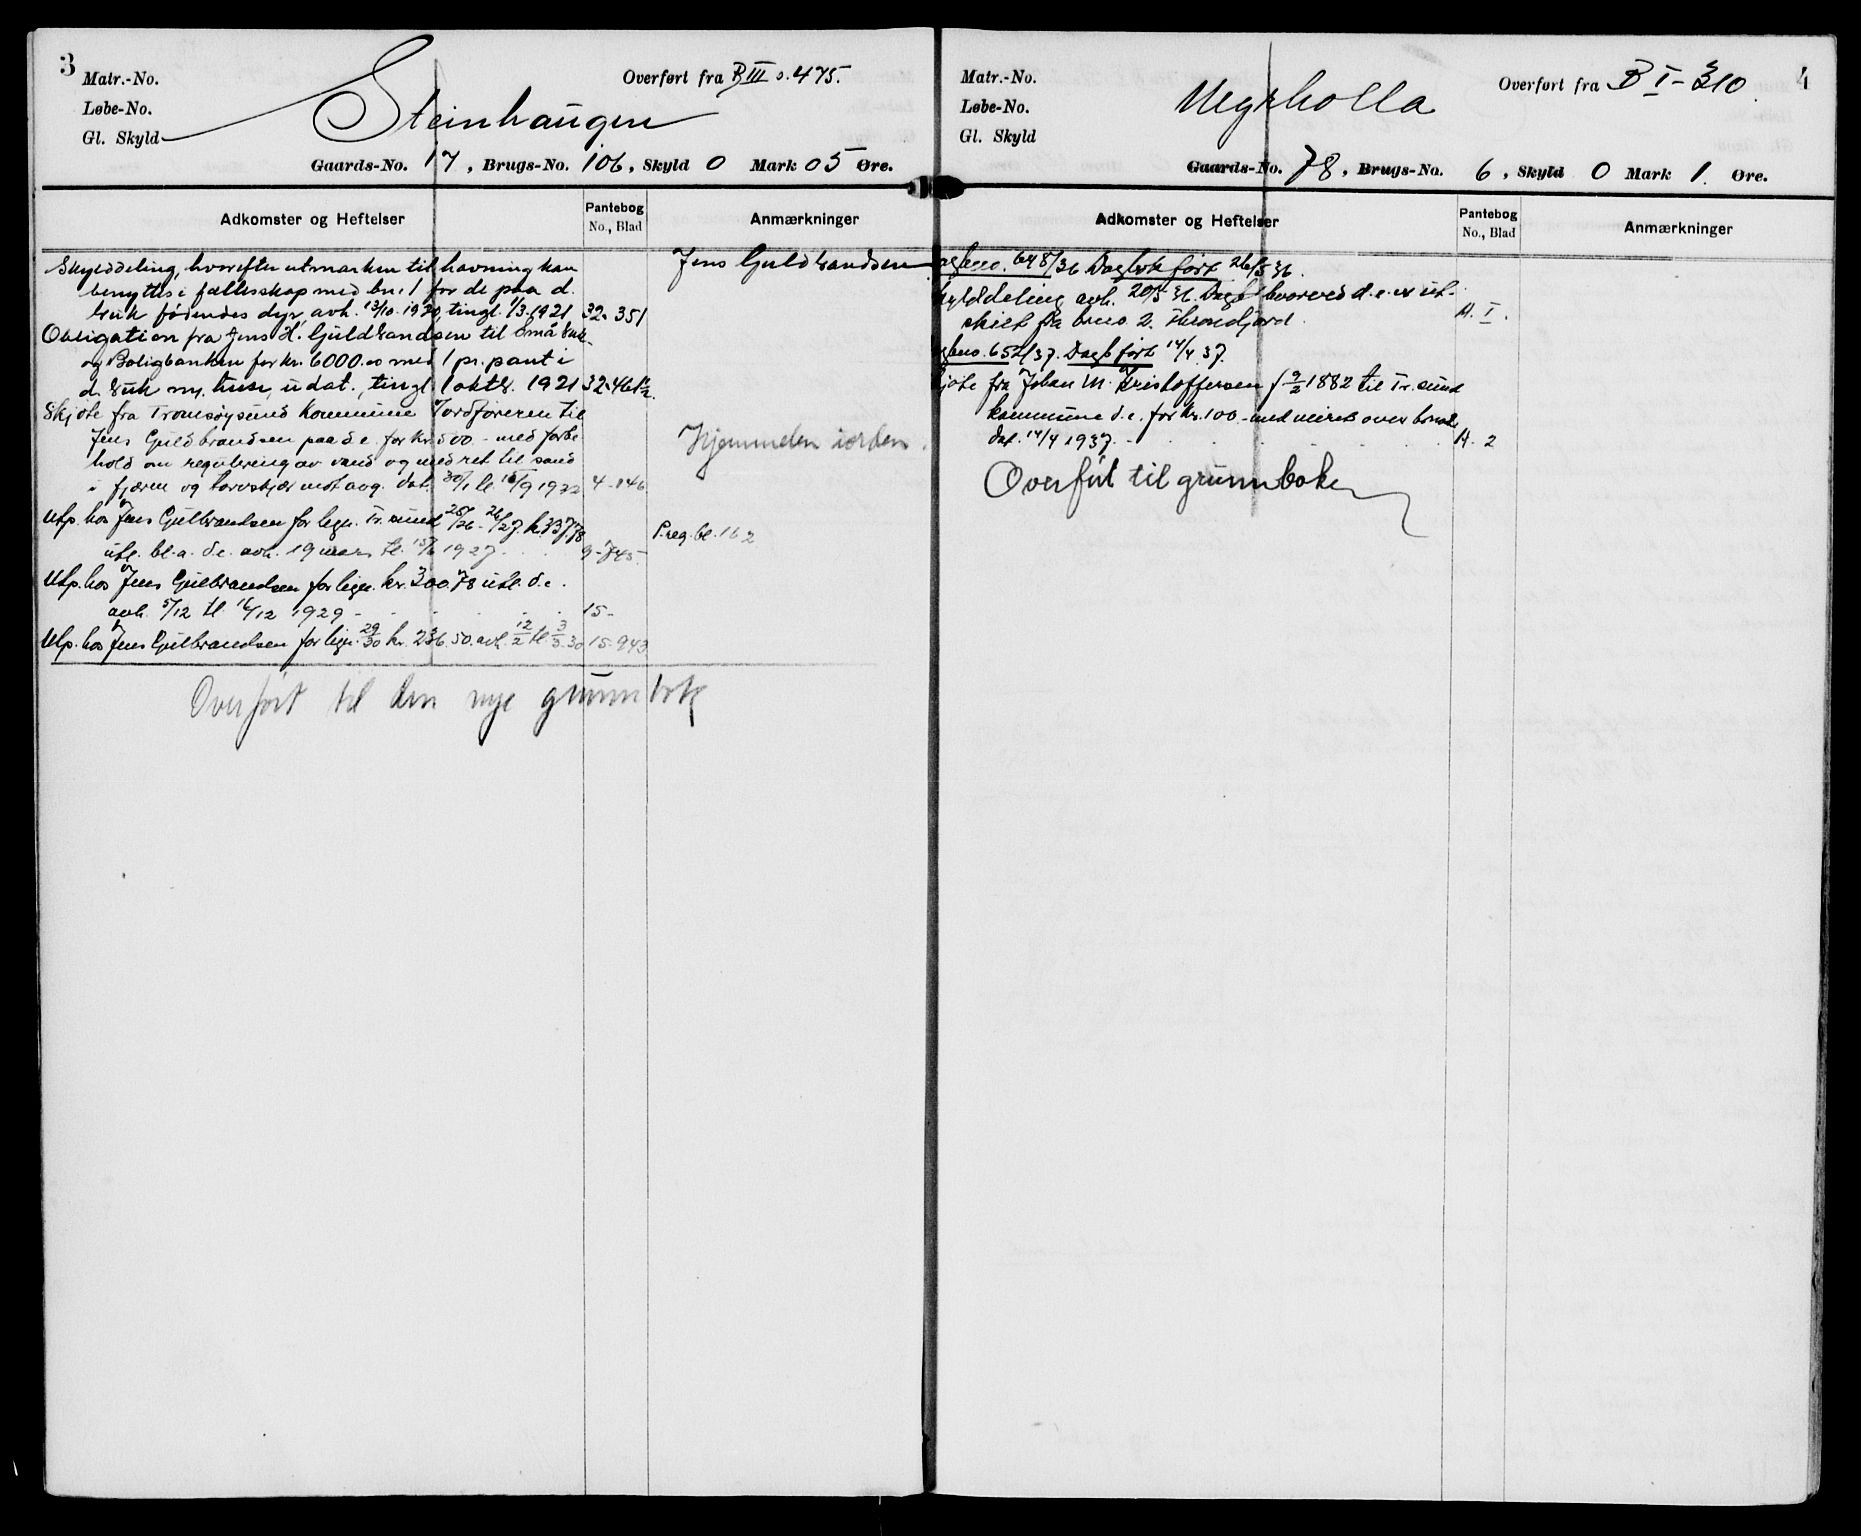 3
Matr.-No.
Løbe-No.
Gl. Skyld
Overført fra B III s. 475.
Steinhaugen
Gaards-No. 17, Brugs-No. 106, Skyld 0 Mark 05 Øre.
Adkomster og Heftelser
Pantebog
No., Blad
Anmærkninger
Skylddeling, hvorefter utmarken til havning kan
benyttes i fællesskap med bn. 1 for de paa d.
bruk fødendes dyr, avh. 13/10. 1920, tingl. 1/3. 1921 32-351
Jens Guldbrandsen
Obligation fra Jens H. Guldbrandsen til Småbruk-
og Boligbanken for kr. 6000.00 med 1 pr. pant i
d. bruk m. huse, udat., tingl. 1 oktb. 1921 32-461
Skjøte fra Tromsøysund Kommune v/ordføreren til
Jens Guldbrandsen paa d.e. for kr. 500.- med forbe-
hold om regulering av vand og med ret til sand
i fjæren og torvskjær mot avg. dat. 30/1 tl. 16/9 1922 4-146
Hjemmelen iorden.
Utp. hos Jens Gulbrandsen for lign. Tr.sund 25/26-26/27. kr 337.78
utl. bl.a. d.e. avh. 19 mars tl. 15/6 1927 9-745
P.reg. bl. 162
Utp. hos Jens Gulbrandsen for lign. kr. 300.78 utl. d.e.
avh. 5/12 tl. 16/12 1929 - 15-
Utp. hos Jens Gulbrandsen for lign. 29/30 kr. 236.50. avh. 12/2 tl 3/3-30 15-943
Overført til den nye grunnbok
4
Matr.-No.
Løbe-No.
Gl. Skyld
Overført fra B I - 310
Megrholla
Gaards-No. 78, Brugs-No. 6, Skyld 0 Mark 1. Øre.
Adkomster og Heftelser
Pantebog
No., Blad
Anmærkninger
agbno. 648/36 Dagbok ført 26/5 36.
kylddeling avh. 20/5 36 hvorved d.e. er ut-
skilt fra brno. 2. A. I.
agbno. 652/37. Dagb ført 14/4 37.
kjøte fra Johan M. Kristoffersen f 9/2 1882 til Tr.sund
kommune d.e. for kr. 100.-
dat. 14/4 1937. - A. 2
Overført til grunnboken